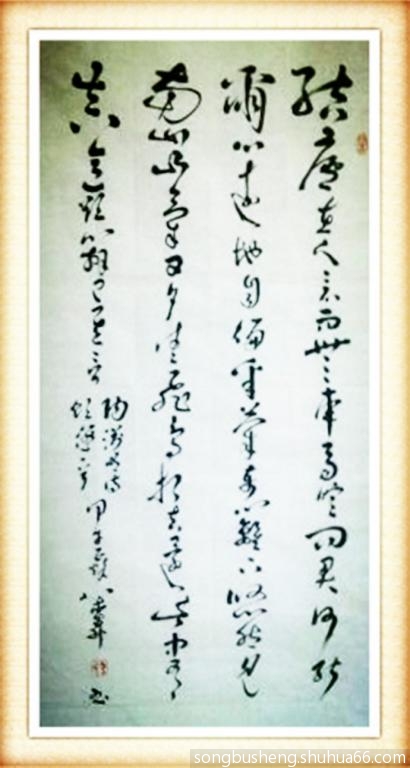 結廬在人境而無車馬喧問君何能
爾心遠地自偏采菊東籬下悠然見
南山山氣日夕佳飛鳥相與還此中有
真意欲辨已忘言
陶淵明詩
飲酒 甲午 書
songbusheng.shuhua66.com